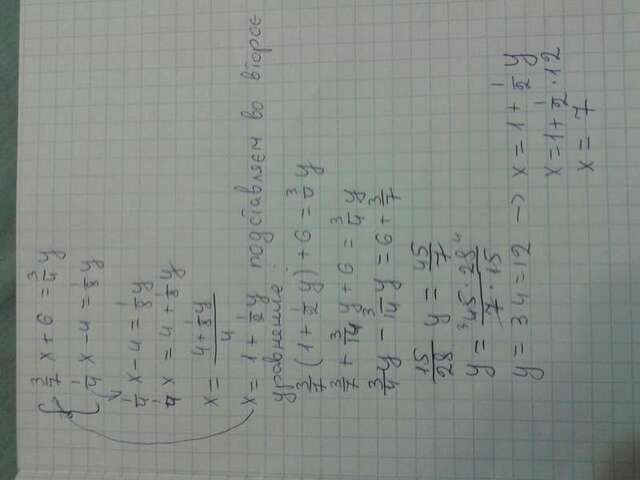 3/7 x + 6 = 3/4 y
1/4 x - 4 = 1/8 y
1/4 x - 4 = 1/8 y
1/4 x = 4 + 1/8 y
x = (4 + 1/8 y)/4
x = 1 + 1/2 y подставляем во второе
уравнение:
3/7 (1 + 1/2 y) + 6 = 3/4 y
3/7 + 3/14 y + 6 = 3/4 y
3/4 y - 3/14 y = 6 + 3/7
15/28 y = 45/7
y = 45 · 28 / 7 · 15
y = 34 = 12 → x = 1 + 1/2 y
x = 1 + 1/2 · 12
x = 7